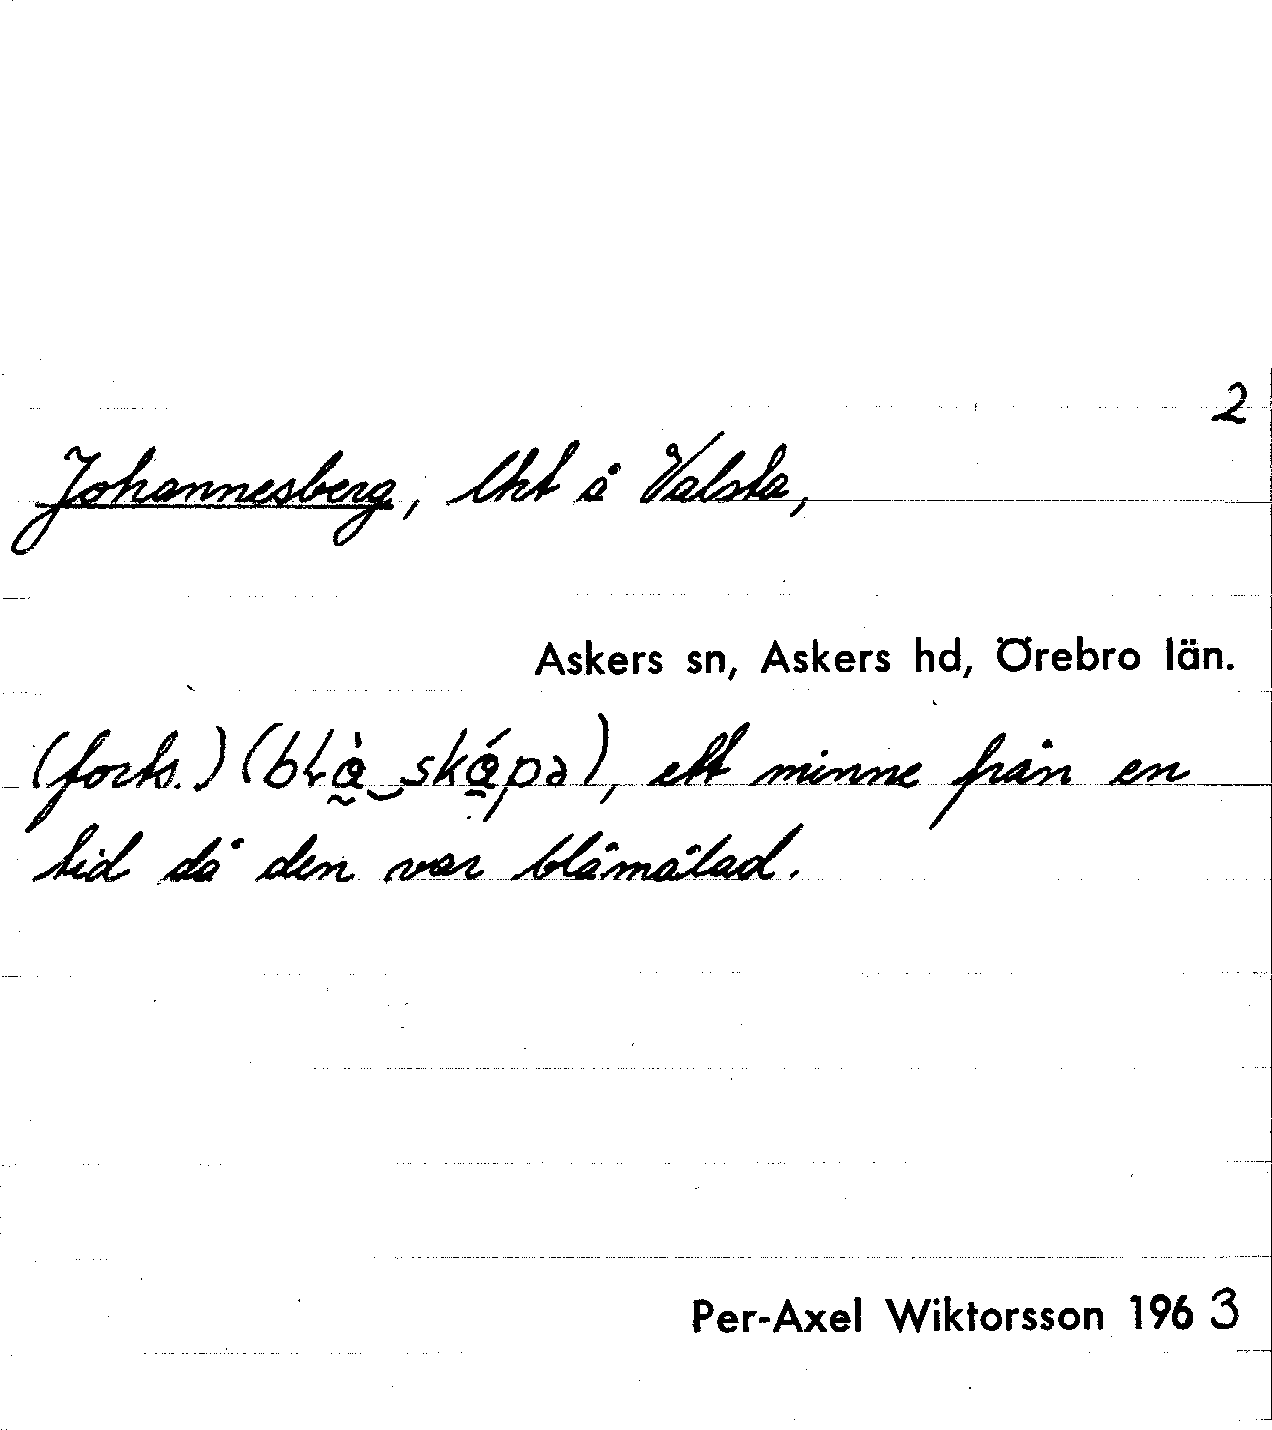 2
Johannesberg, lht å Valsta,
Askers sn, Askers hd, Örebro län.
(forts.) (blå̀ skǻpə), ett minne från en
tid då den var blåmålad.
Per-Axel Wiktorsson 1963